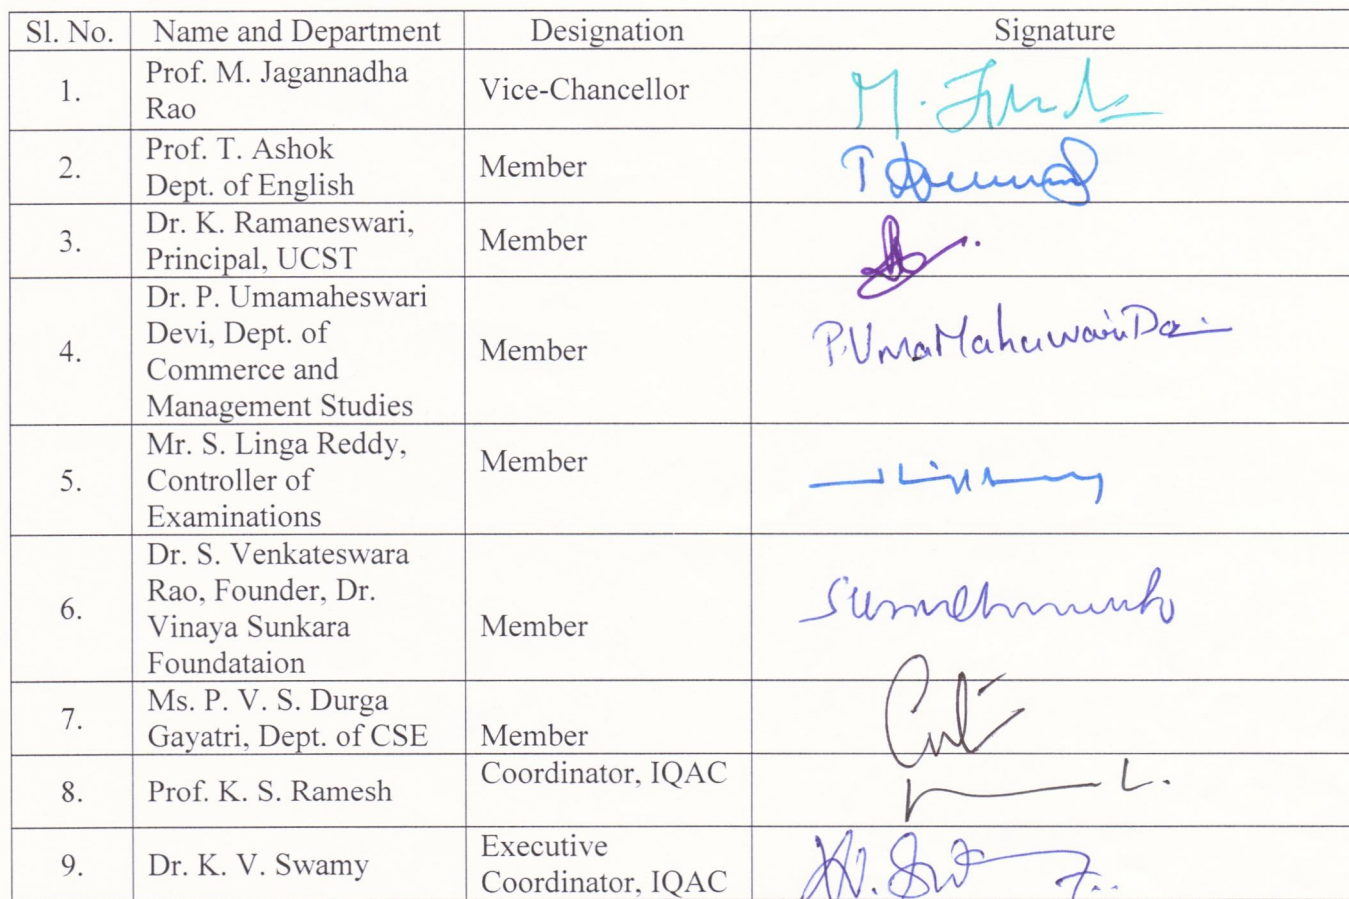 Sl. No. Name and Department Designation Signature
1. Prof. M. Jagannadha Rao Vice-Chancellor
M.
2. Prof. T. Ashok
Dept. of English Member
T
3. Dr. K. Ramaneswari,
Principal, UCST Member
4. Dr. P. Umamaheswari
Devi, Dept. of
Commerce and
Management Studies Member
P. Uma
5. Mr. S. Linga Reddy,
Controller of
Examinations Member
6. Dr. S. Venkateswara
Rao, Founder, Dr.
Vinaya Sunkara
Foundataion Member
7. Ms. P. V. S. Durga
Gayatri, Dept. of CSE Member
8. Prof. K. S. Ramesh Coordinator, IQAC
9. Dr. K. V. Swamy Executive
Coordinator, IQAC